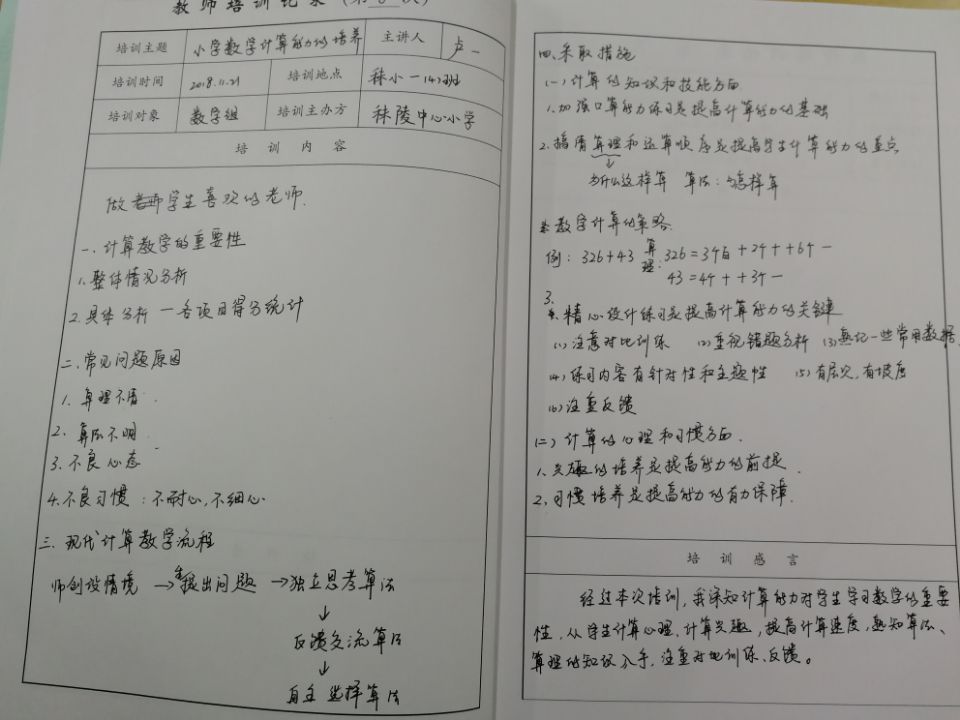 教师培训记录（第 次）
培训主题 小学数学计算能力的培养 主讲人 卢一
培训时间 2018.11.21 培训地点 秣小一（4）班
培训对象 数学组 培训主办方 秣陵中心小学
培训内容
做学生喜欢的老师.
一.计算教学的重要性
1.整体情况分析
2.具体分析 — 各项目得分统计
二.常见问题原因
1.算理不清.
2.算法不明.
3.不良心态
4.不良习惯：不耐心,不细心
三.现代计算教学流程
师创设情境 → 生提出问题 → 独立思考算法
↓
反馈交流算法
↓
自主选择算法
四.采取措施
(一)计算的知识和技能方面
1.加强口算能力练习是提高计算能力的基础
2.搞清算理和运算顺序是提高学生计算能力的重点
↓
为什么这样算 算法：怎样算
数学计算的策略
例：326+43 算理：326=3个百+2个十+6个一
43=4个十+3个一
3.精心设计练习是提高计算能力的关键
(1)注意对比训练 (2)重视错题分析 (3)熟记一些常用数据
(4)练习内容有针对性和主题性 (5)有层次,有坡度
(6)注重反馈
(二)计算的心理和习惯方面.
1.兴趣的培养是提高能力的前提.
2.习惯培养是提高能力的有力保障.
培训感言
经过本次培训,我深知计算能力对学生学习数学的重要
性,从学生计算心理、计算兴趣,提高计算速度,熟知算法、
算理的知识入手,注重对比训练、反馈。